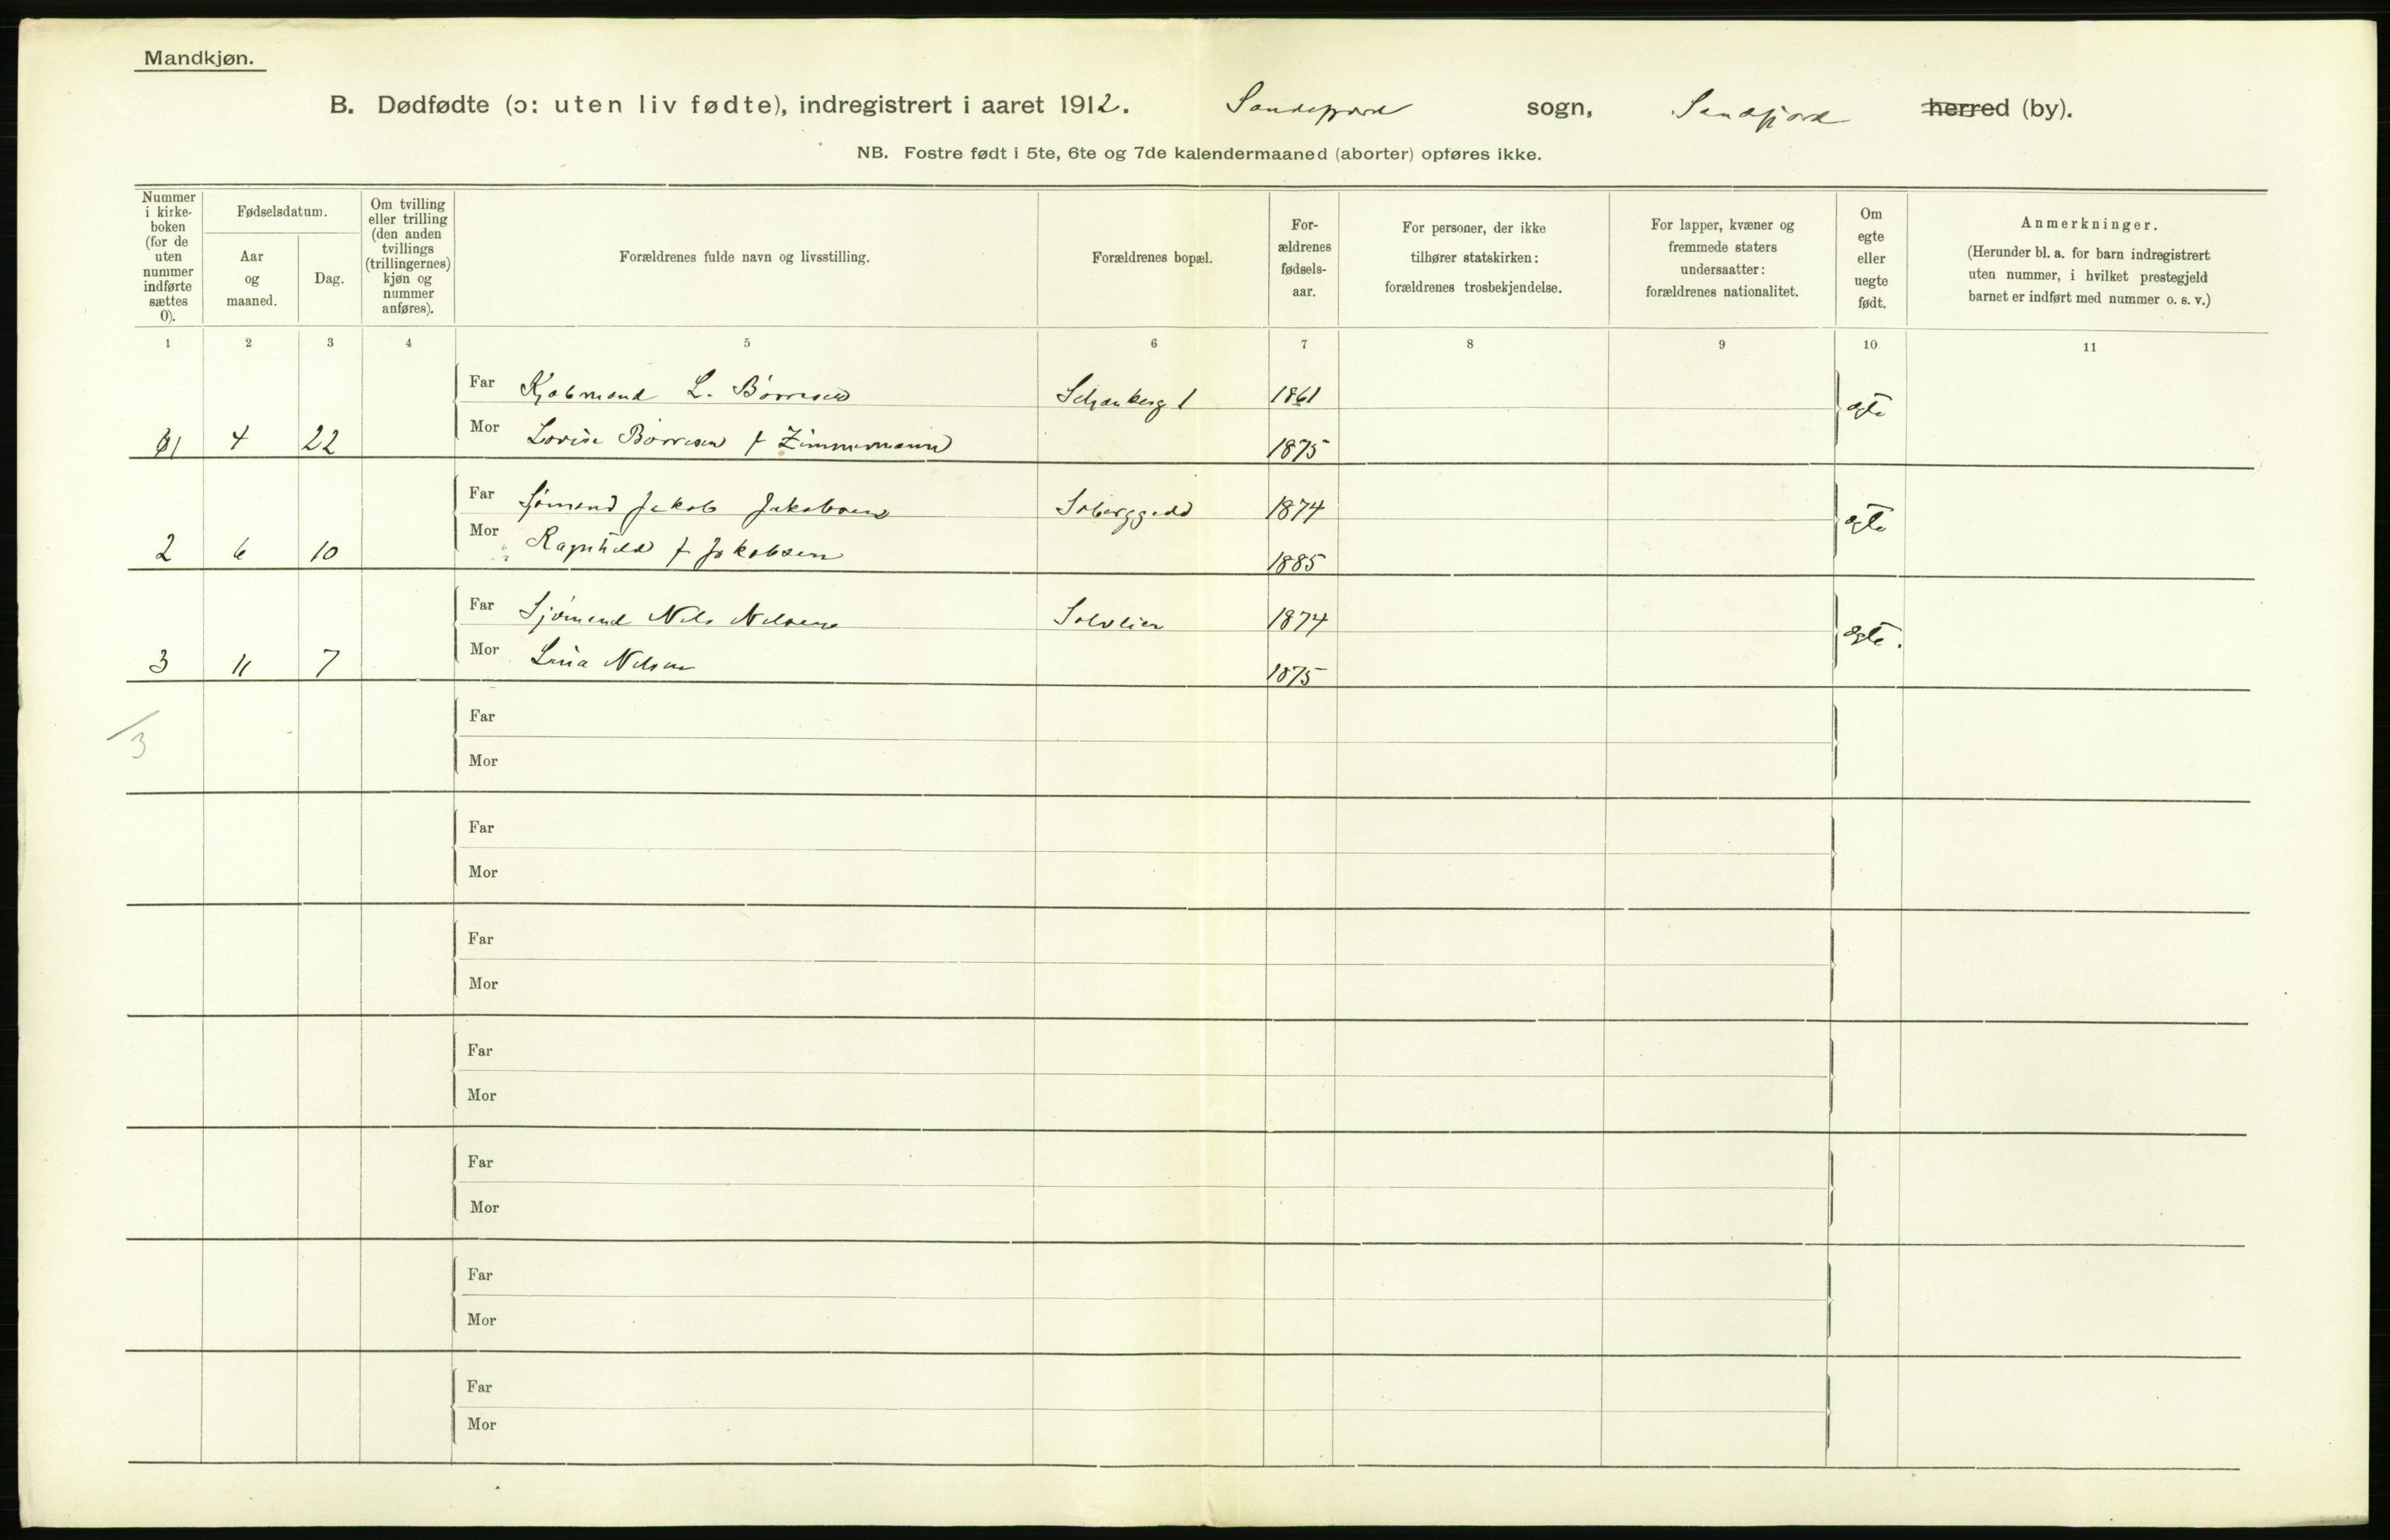 Mandkjøn.
B. Dødfødte (ɔ: uten liv fødte), indregistrert i aaret 1912. Sandefjord sogn, Sandefjord herred (by).
NB. Fostre født i 5te, 6te og 7de kalendermaaned (aborter) opføres ikke.
Nummer i kirke-boken (for de uten nummer indførte sættes 0).
Fødselsdatum.
Aar og maaned.
Dag.
Om tvilling eller trilling (den anden tvillings (trillingernes) kjøn og nummer anføres).
Forældrenes fulde navn og livsstilling.
Forældrenes bopæl.
For-ældrenes fødsels-aar.
For personer, der ikke tilhører statskirken: forældrenes trosbekjendelse.
For lapper, kvæner og fremmede staters undersaatter: forældrenes nationalitet.
Om egte eller uegte født.
Anmerkninger.
(Herunder bl. a. for barn indregistrert uten nummer, i hvilket prestegjeld barnet er indført med nummer o. s. v.)
1 2 3 4 5 6 7 8 9 10 11
Far Kjøbmand L. Børresen 1861 egte
1 4 22 Mor Lovise Børresen f Zimmermann 1875
Far Sjømand Jakob Jakobsen 1874 egte
2 6 10 Mor Ragnhild f Jakobsen 1885
Far Sjømand Nils Nilsen 1874 egte.
3 11 7 Mor Lina Nilsen 1875
Far
/3
Mor
Far
Mor
Far
Mor
Far
Mor
Far
Mor
Far
Mor
Far
Mor